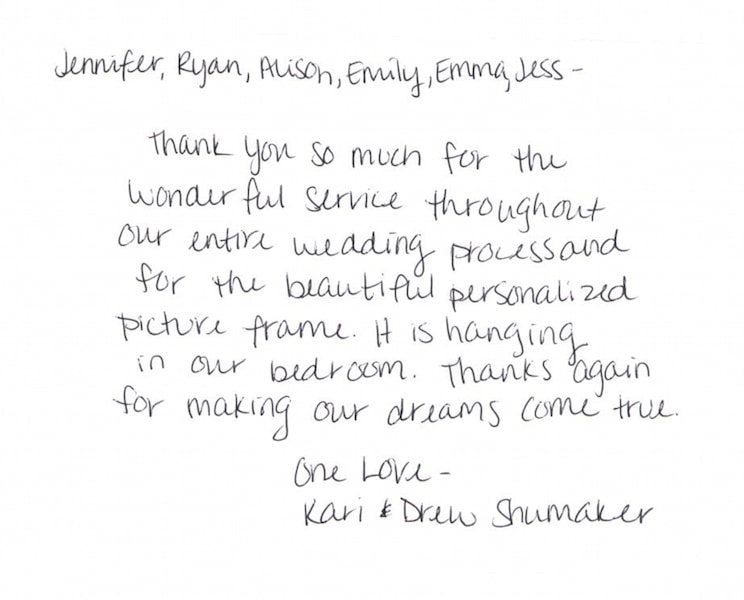 Jennifer, Ryan, Alison, Emily, Emma, Jess -
Thank you so much for the
wonderful service throughout
our entire wedding process and
for the beautiful personalized
picture frame. It is hanging
in our bedroom. Thanks again
for making our dreams come true.
One Love -
Kari & Drew Shumaker